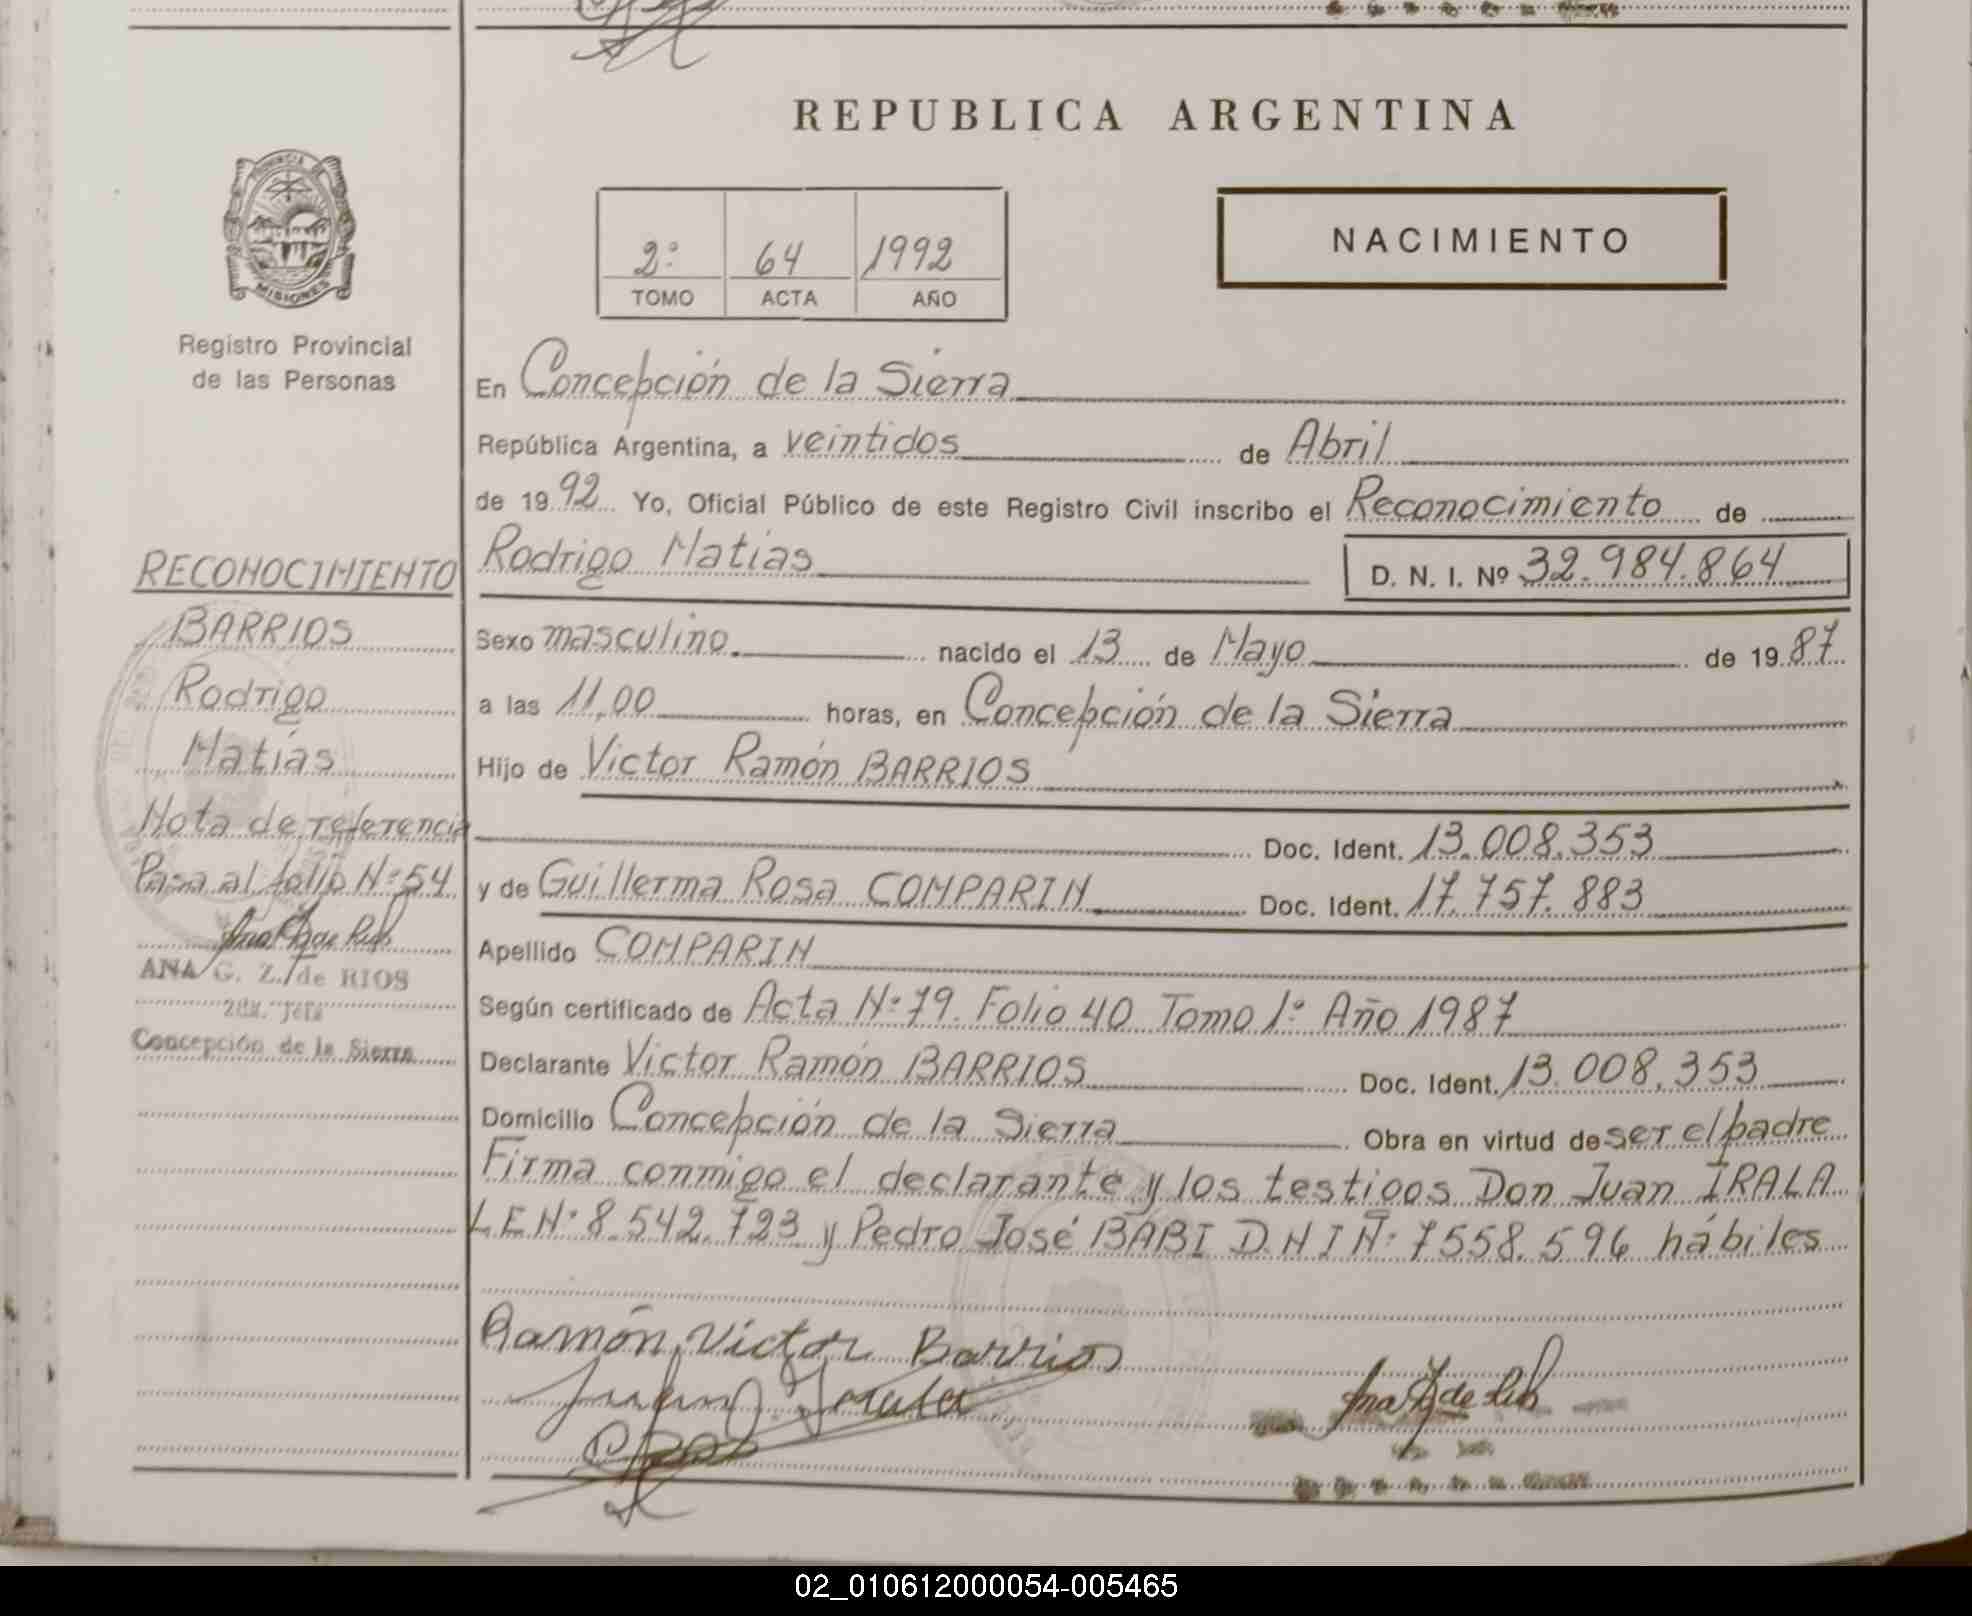 REPUBLICA ARGENTINA
PROVINCIA DE
MISIONES
Registro Provincial
de las Personas
2º 64 1992
TOMO ACTA AÑO
NACIMIENTO
En Concepción de la Sierra
República Argentina, a veintidos de Abril
de 1992 Yo, Oficial Público de este Registro Civil inscribo el Reconocimiento de
Rodrigo Matias D. N. I. Nº 32.984.864
Sexo masculino nacido el 13 de Mayo de 1987
a las 11,00 horas, en Concepción de la Sierra
Hijo de Victor Ramón BARRIOS
Doc. Ident. 13.008.353
y de Guillerma Rosa COMPARIN Doc. Ident. 17.757.883
Apellido COMPARIN
Según certificado de Acta Nº 79. Folio 40 Tomo 1º Año 1987
Declarante Victor Ramón BARRIOS Doc. Ident. 13.008.353
Domicilio Concepción de la Sierra Obra en virtud de ser el padre
Firma conmigo el declarante y los testigos Don Juan IRALA
LE Nº 8.542.723 y Pedro José BABI D.N.I Nº 7558.596 hábiles
Ramón Victor Barrios
RECONOCIMIENTO
BARRIOS
Rodrigo
Matías
Nota de referencia
Pasa al folio Nº 54
ANA G. Z. de RIOS
Concepción de la Sierra
02_010612000054-005465